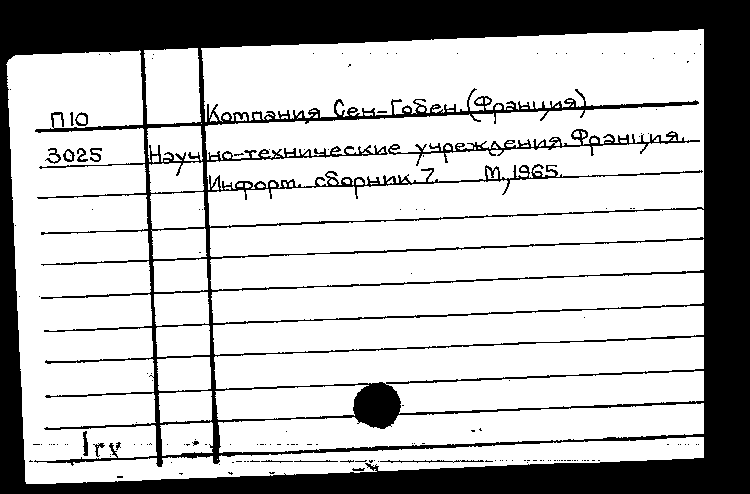 П10 Компания Сен-Гобен. (Франция).
3025 Научно-технические учреждения. Франция.
Информ. сборник. 7. М., 1965.